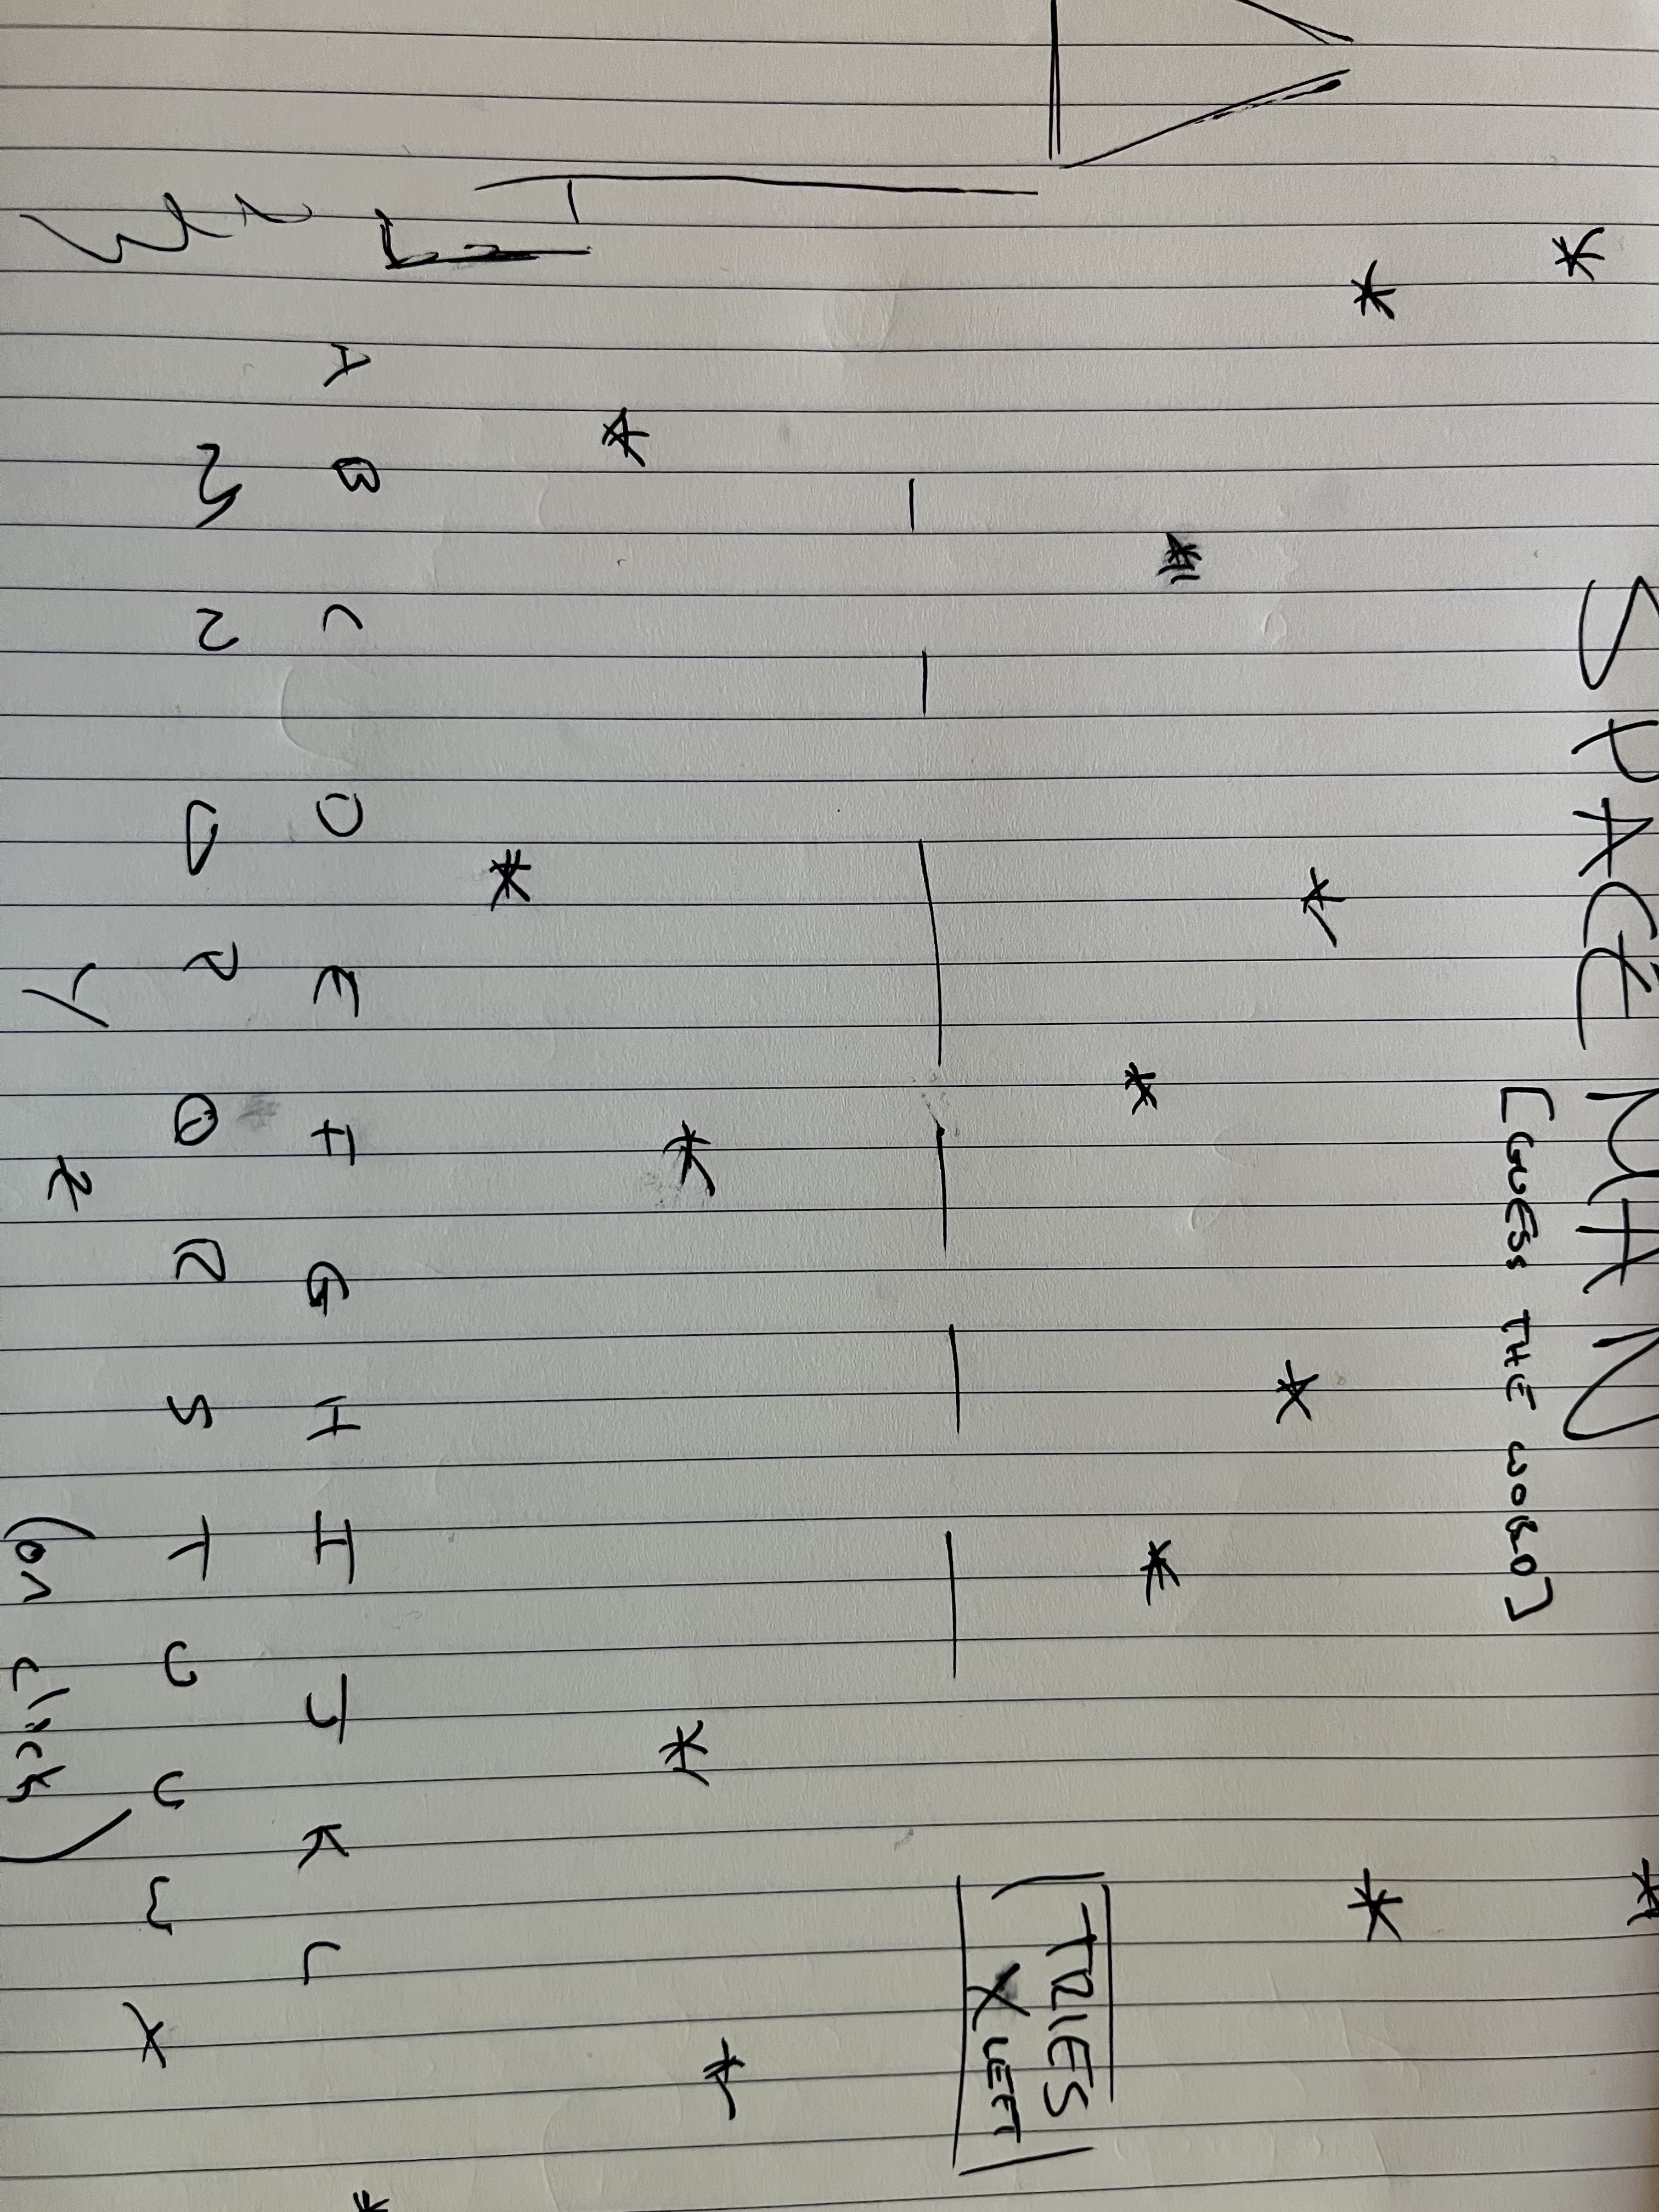 SPACE MAN
[GUESS THE WORD]
TRIES
X LEFT
A B C D E F G H I J K L
M N O P Q R S T U V W X
Y Z (on click)